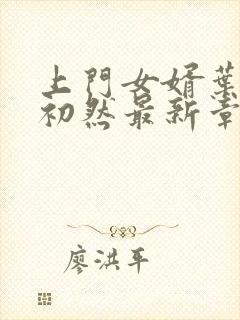 上門女婿葉
初然最新章
廖洪平